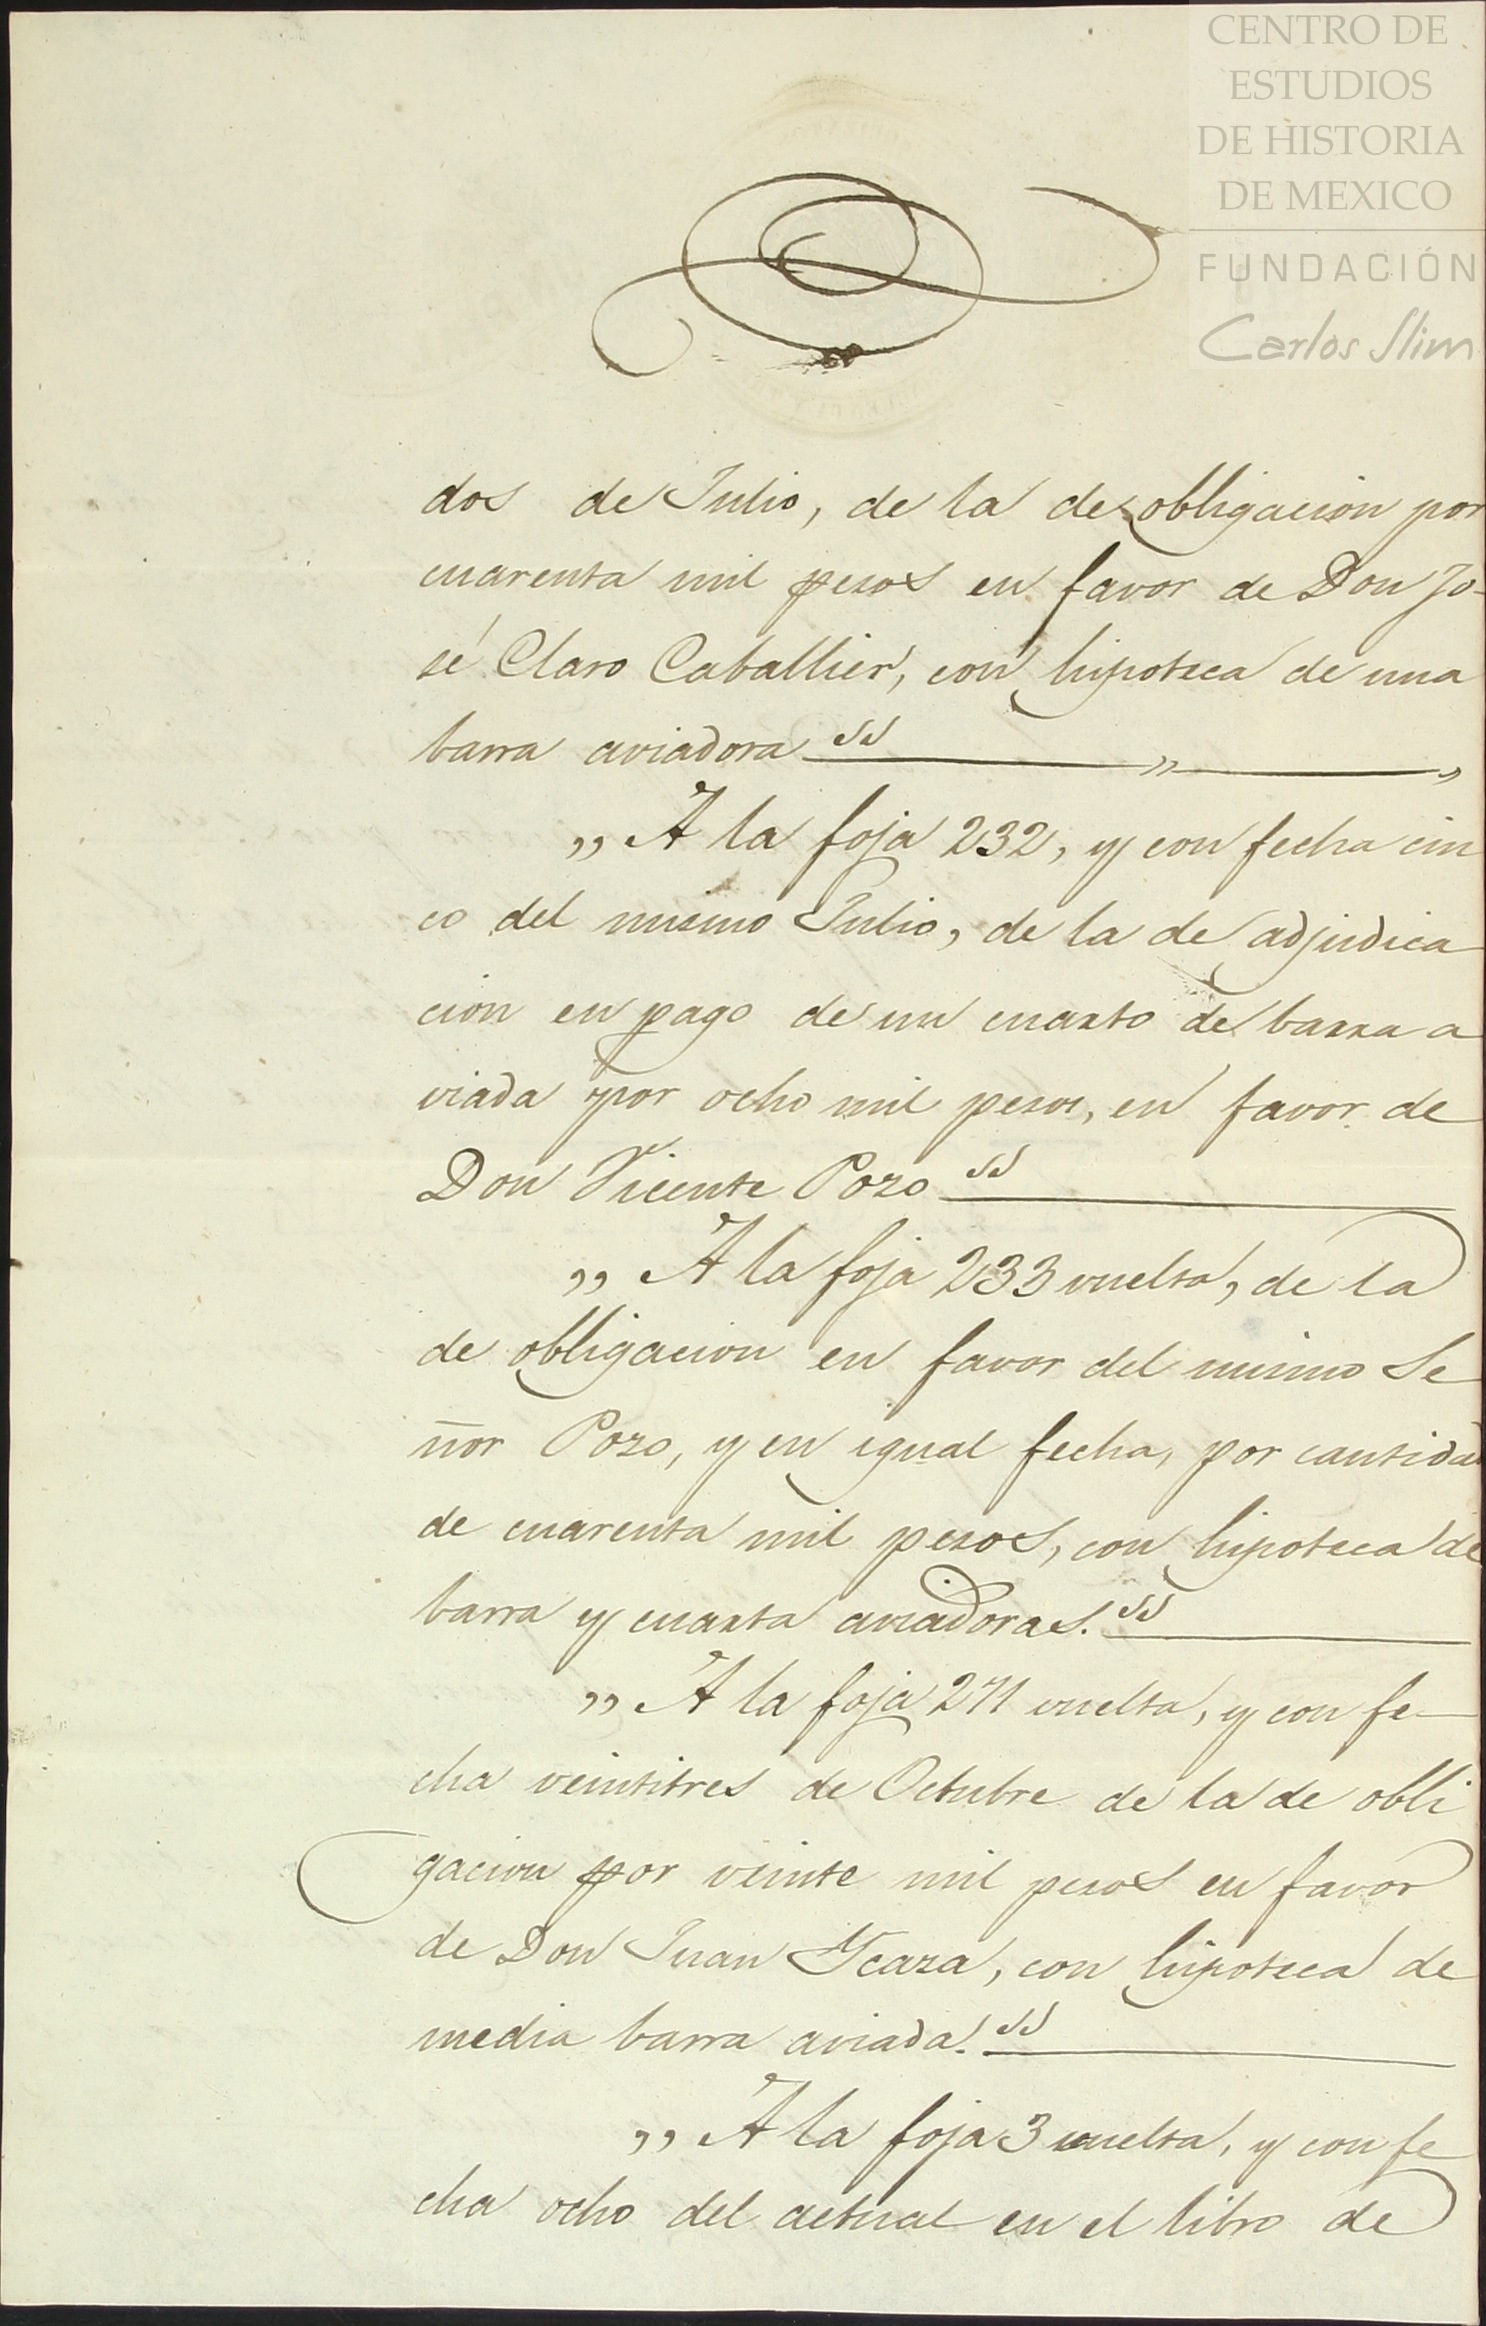 CENTRO DE
ESTUDIOS
DE HISTORIA
DE MEXICO
FUNDACIÓN
Carlos Slim
dos de Julio, de la de obligacion por
cuarenta mil pesos en favor de Don Jo-
sé Claro Caballier, con hipoteca de una
barra aviadora "——"——"
„ A la foja 232, y con fecha cin
co del mismo Julio, de la de adjudica
cion en pago de un cuarto de barra a
viada por ocho mil pesos, en favor de
Don Vicente Pozo "——
„ A la foja 233 vuelta, de la
de obligacion en favor del mismo Se
ñor Pozo, y en igual fecha, por cantidad
de cuarenta mil pesos, con hipoteca de
barra y cuarta aviadoras. "——
„ A la foja 271 vuelta, y con fe-
cha veintitres de Octubre de la de obli
gacion por veinte mil pesos en favor
de Don Juan Ycaza, con hipoteca de
media barra aviada. "——
„ A la foja 3 vuelta, y con fe
cha ocho del actual en el libro de